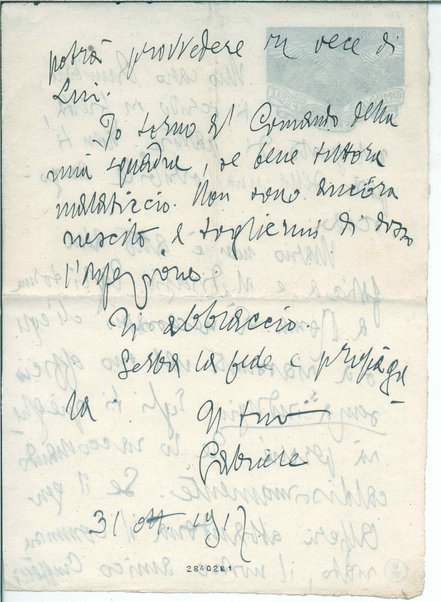 potrà provvedere in vece di
Lui.
Io torno al Comando della
mia squadra, se bene tuttora
malaticcio. Non sono ancóra
riescito a togliermi di dosso
l'infezione.
Ti abbraccio.
Serba la fede e propàga
la.
Il tuo
Gabriele
31 ott. 1917
2846281